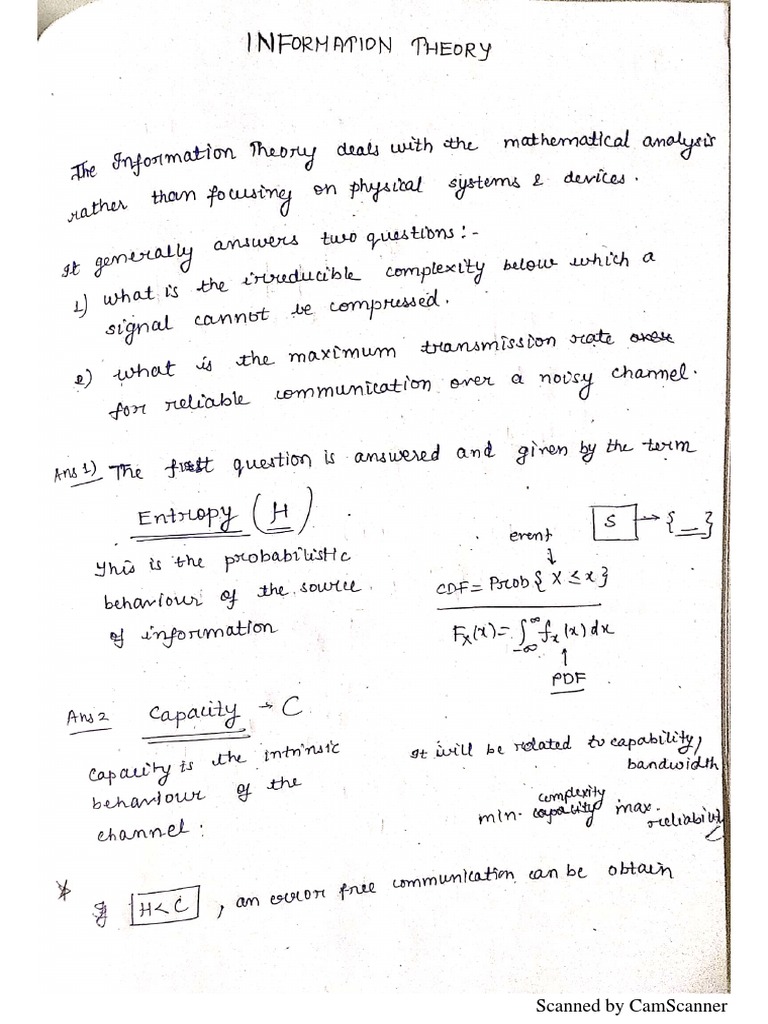 INFORMATION THEORY
The Information Theory deals with the mathematical analysis
rather than focusing on physical systems & devices.
It generally answers two questions:-
1) what is the irreducible complexity below which a
signal cannot be compressed.
2) what is the maximum transmission rate
for reliable communication over a noisy channel.
Ans 1) The first question is answered and given by the term
Entropy (H)
This is the probabilistic
behaviour of the source
of information
S → {__}
event
↓
CDF = Prob{X ≤ x}
F_X(x) = ∫_{-∞}^{∞} f_x(x) dx
↑
PDF
Ans 2 Capacity → C
Capacity is the intrinsic
behaviour of the
channel:
It will be related to capability,
bandwidth
complexity
min. capability max.
reliability
* If H < C, an error free communication can be obtain
Scanned by CamScanner